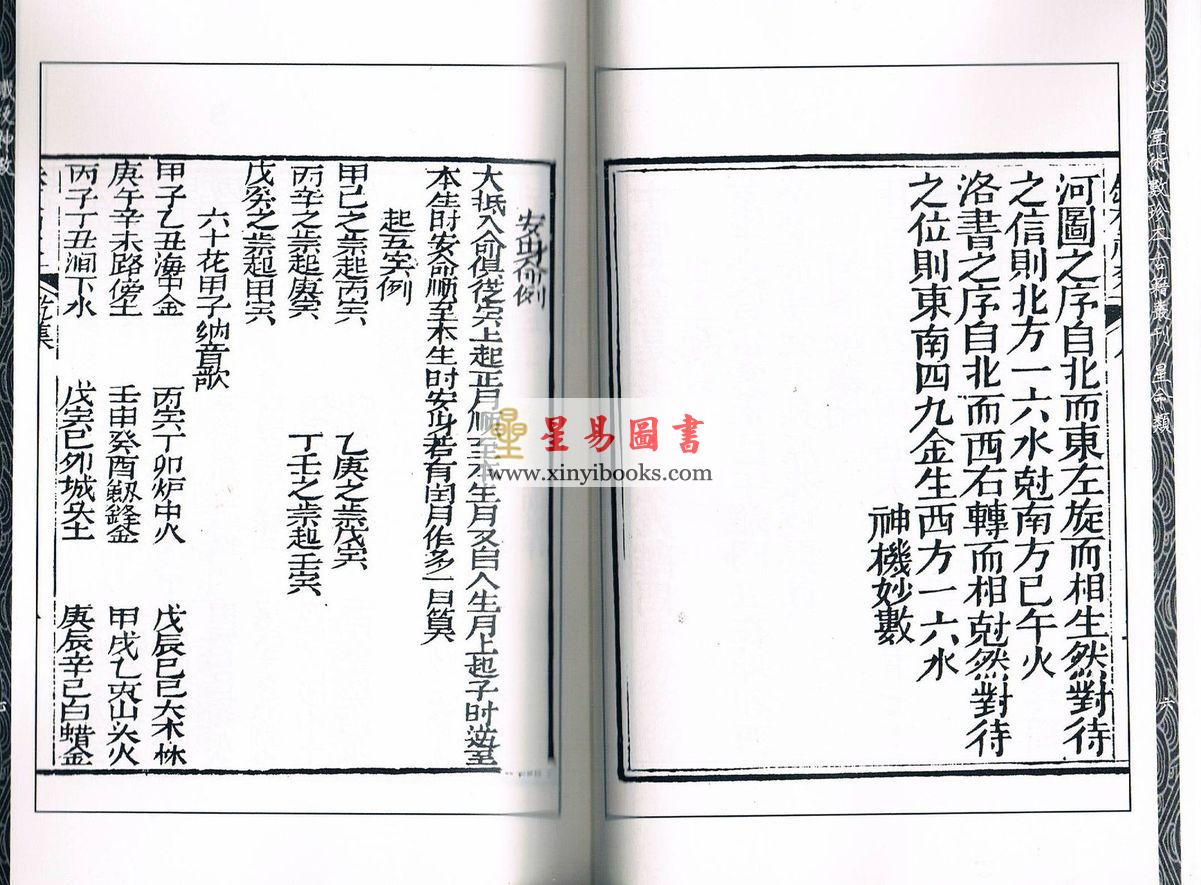 心一堂術數珍本古籍叢刊 星命類
六
河圖之序自北而東左旋而相生然對待
之信則北方一六水尅南方巳午火
洛書之序自北而西右轉而相尅然對待
之位則東南四九金生西方一六水
神機妙數
安身命例
大抵人命俱從寅上起正月順至本生月又自人生月上起子時逆至
本生時安命順至本生時安身若有閏月作多一月算
起五寅例
甲己之歲起丙寅 乙庚之歲戊寅
丙辛之歲起庚寅 丁壬之歲起壬寅
戊癸之歲起甲寅
六十花甲子納音歌
甲子乙丑海中金 丙寅丁卯炉中火 戊辰巳巳大木林
庚午辛未路傍土 壬申癸酉劔鋒金 甲戌乙亥山头火
丙子丁丑涧下水 戊寅巳卯城头土 庚辰辛巳白蜡金
乾集
星易圖書
www.xinyibooks.com